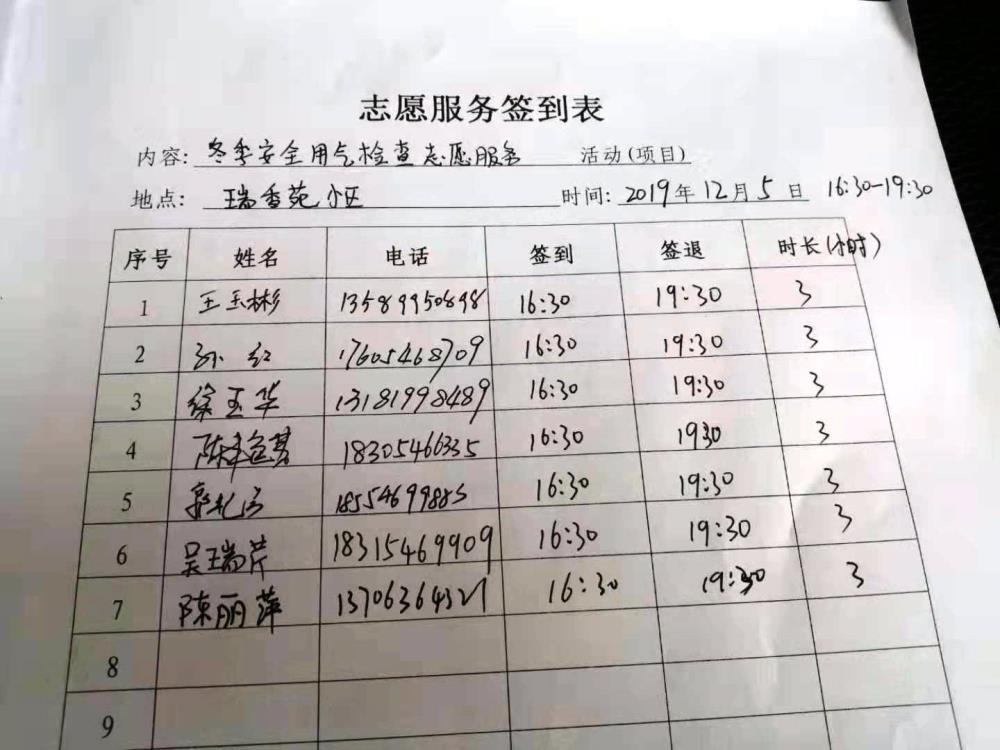 志愿服务签到表
内容: 冬季安全用气检查志愿服务 活动(项目)
地点: 瑞香苑小区 时间: 2019年12月5日 16:30-19:30
序号 姓名 电话 签到 签退 时长(小时)
1 王玉彬 13589950898 16:30 19:30 3
2 孙红 17605468709 16:30 19:30 3
3 徐玉华 13181998489 16:30 19:30 3
4 陈 18305466335 16:30 1930 3
5 郭 18554699885 16:30 19:30 3
6 吴瑞芹 18315469909 16:30 19:30 3
7 陈丽萍 13706364321 16:30 19:30 3
8
9